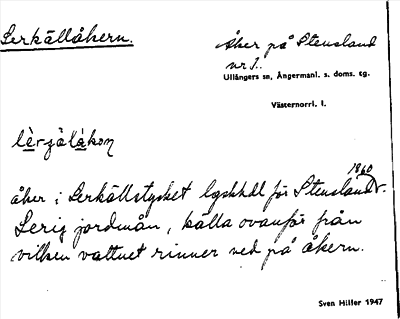 Lerkällåkern.
Åker på Stensland
nr 1.
Ullångers sn, Ångermanl. s. doms. tg.
Västernorrl. l.
åker i Lerkällstycket lgskkdl för Stensland 1860.
Lerig jordmån, källa ovanför från
vilken vattnet rinner ned på åkern.
Sven Hiller 1947